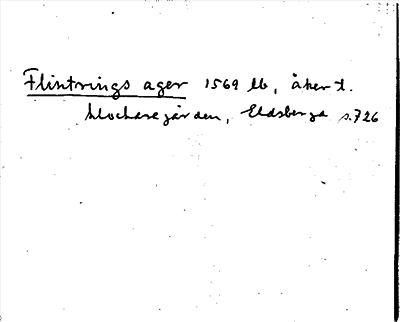 Flintrings ager 1569 lb, åker t.
klockaregården, Eldsberga s.726